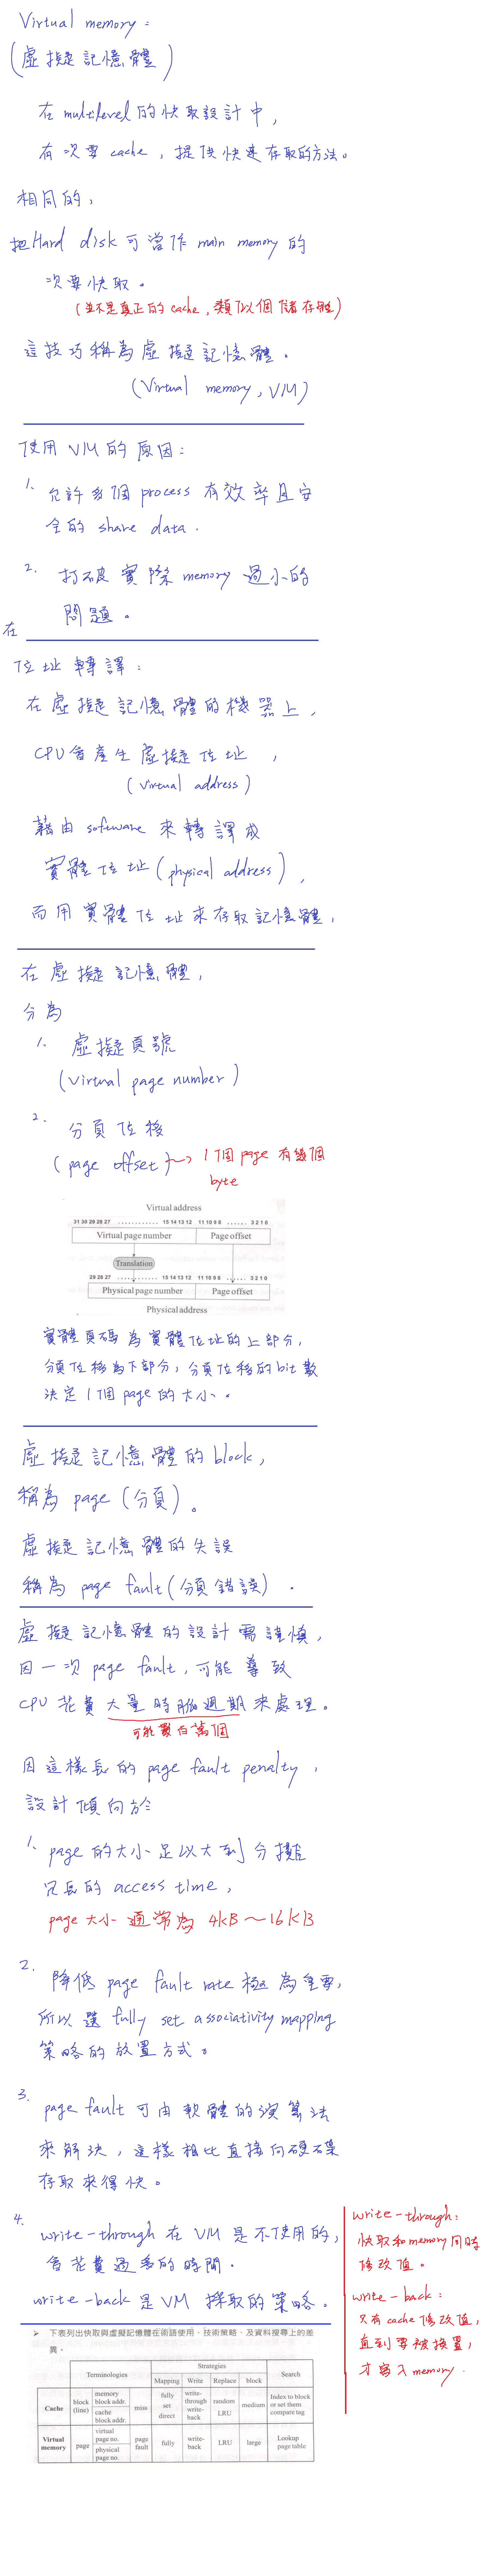 Virtual memory：
(虛擬記憶體)
在 multilevel 的快取設計中，
有次要 cache，提供快速存取的方法。
相同的，
把 Hard disk 可當作 main memory 的
次要快取。
(並不是真正的 cache，類似個儲存體)
這技巧稱為虛擬記憶體。
(Virtual memory, VM)
使用 VM 的原因：
1. 允許多個 process 有效率且安
全的 share data.
2. 打破實際 memory 過小的
問題。
在
位址轉譯：
在虛擬記憶體的機器上，
CPU 會產生虛擬位址，
(virtual address)
藉由 software 來轉譯成
實體位址 (physical address)，
而用實體位址來存取記憶體，
在虛擬記憶體，
分為
1. 虛擬頁號
(virtual page number)
2. 分頁位移
(page offset) → 1個 page 有幾個
byte
Virtual address
31 30 29 28 27 ............ 15 14 13 12 11 10 9 8 ...... 3 2 1 0
Virtual page number Page offset
Translation
29 28 27 ............ 15 14 13 12 11 10 9 8 ...... 3 2 1 0
Physical page number Page offset
Physical address
實體頁碼為實體位址的上部分，
分頁位移為下部分，分頁位移的 bit 數
決定 1個 page 的大小。
虛擬記憶體的 block，
稱為 page (分頁)。
虛擬記憶體的失誤
稱為 page fault (分頁錯誤).
虛擬記憶體的設計需謹慎，
因一次 page fault，可能導致
CPU 花費大量時脈週期來處理。
可能數百萬個
因這樣長的 page fault penalty，
設計傾向於
1. page 的大小足以大到分攤
冗長的 access time，
page 大小通常為 4KB ~ 16KB
2. 降低 page fault rate 極為重要，
所以選 fully set associativity mapping
策略的放置方式。
3. page fault 可由軟體的演算法
來解決，這樣相比直接向硬碟
存取來得快。
4. write-through 在 VM 是不使用的，
會花費過多的時間.
write-back 是 VM 採取的策略。
write-through：
快取和 memory 同時
修改值。
write-back：
只有 cache 修改值，
直到要被換置，
才寫入 memory.
➢ 下表列出快取與虛擬記憶體在術語使用、技術策略、及資料搜尋上的差
異。
Terminologies Strategies Search
Mapping Write Replace block
Cache block (line) memory block addr. cache block addr. miss fully set direct write-through write-back random LRU medium Index to block or set them compare tag
Virtual memory page virtual page no. physical page no. page fault fully write-back LRU large Lookup page table